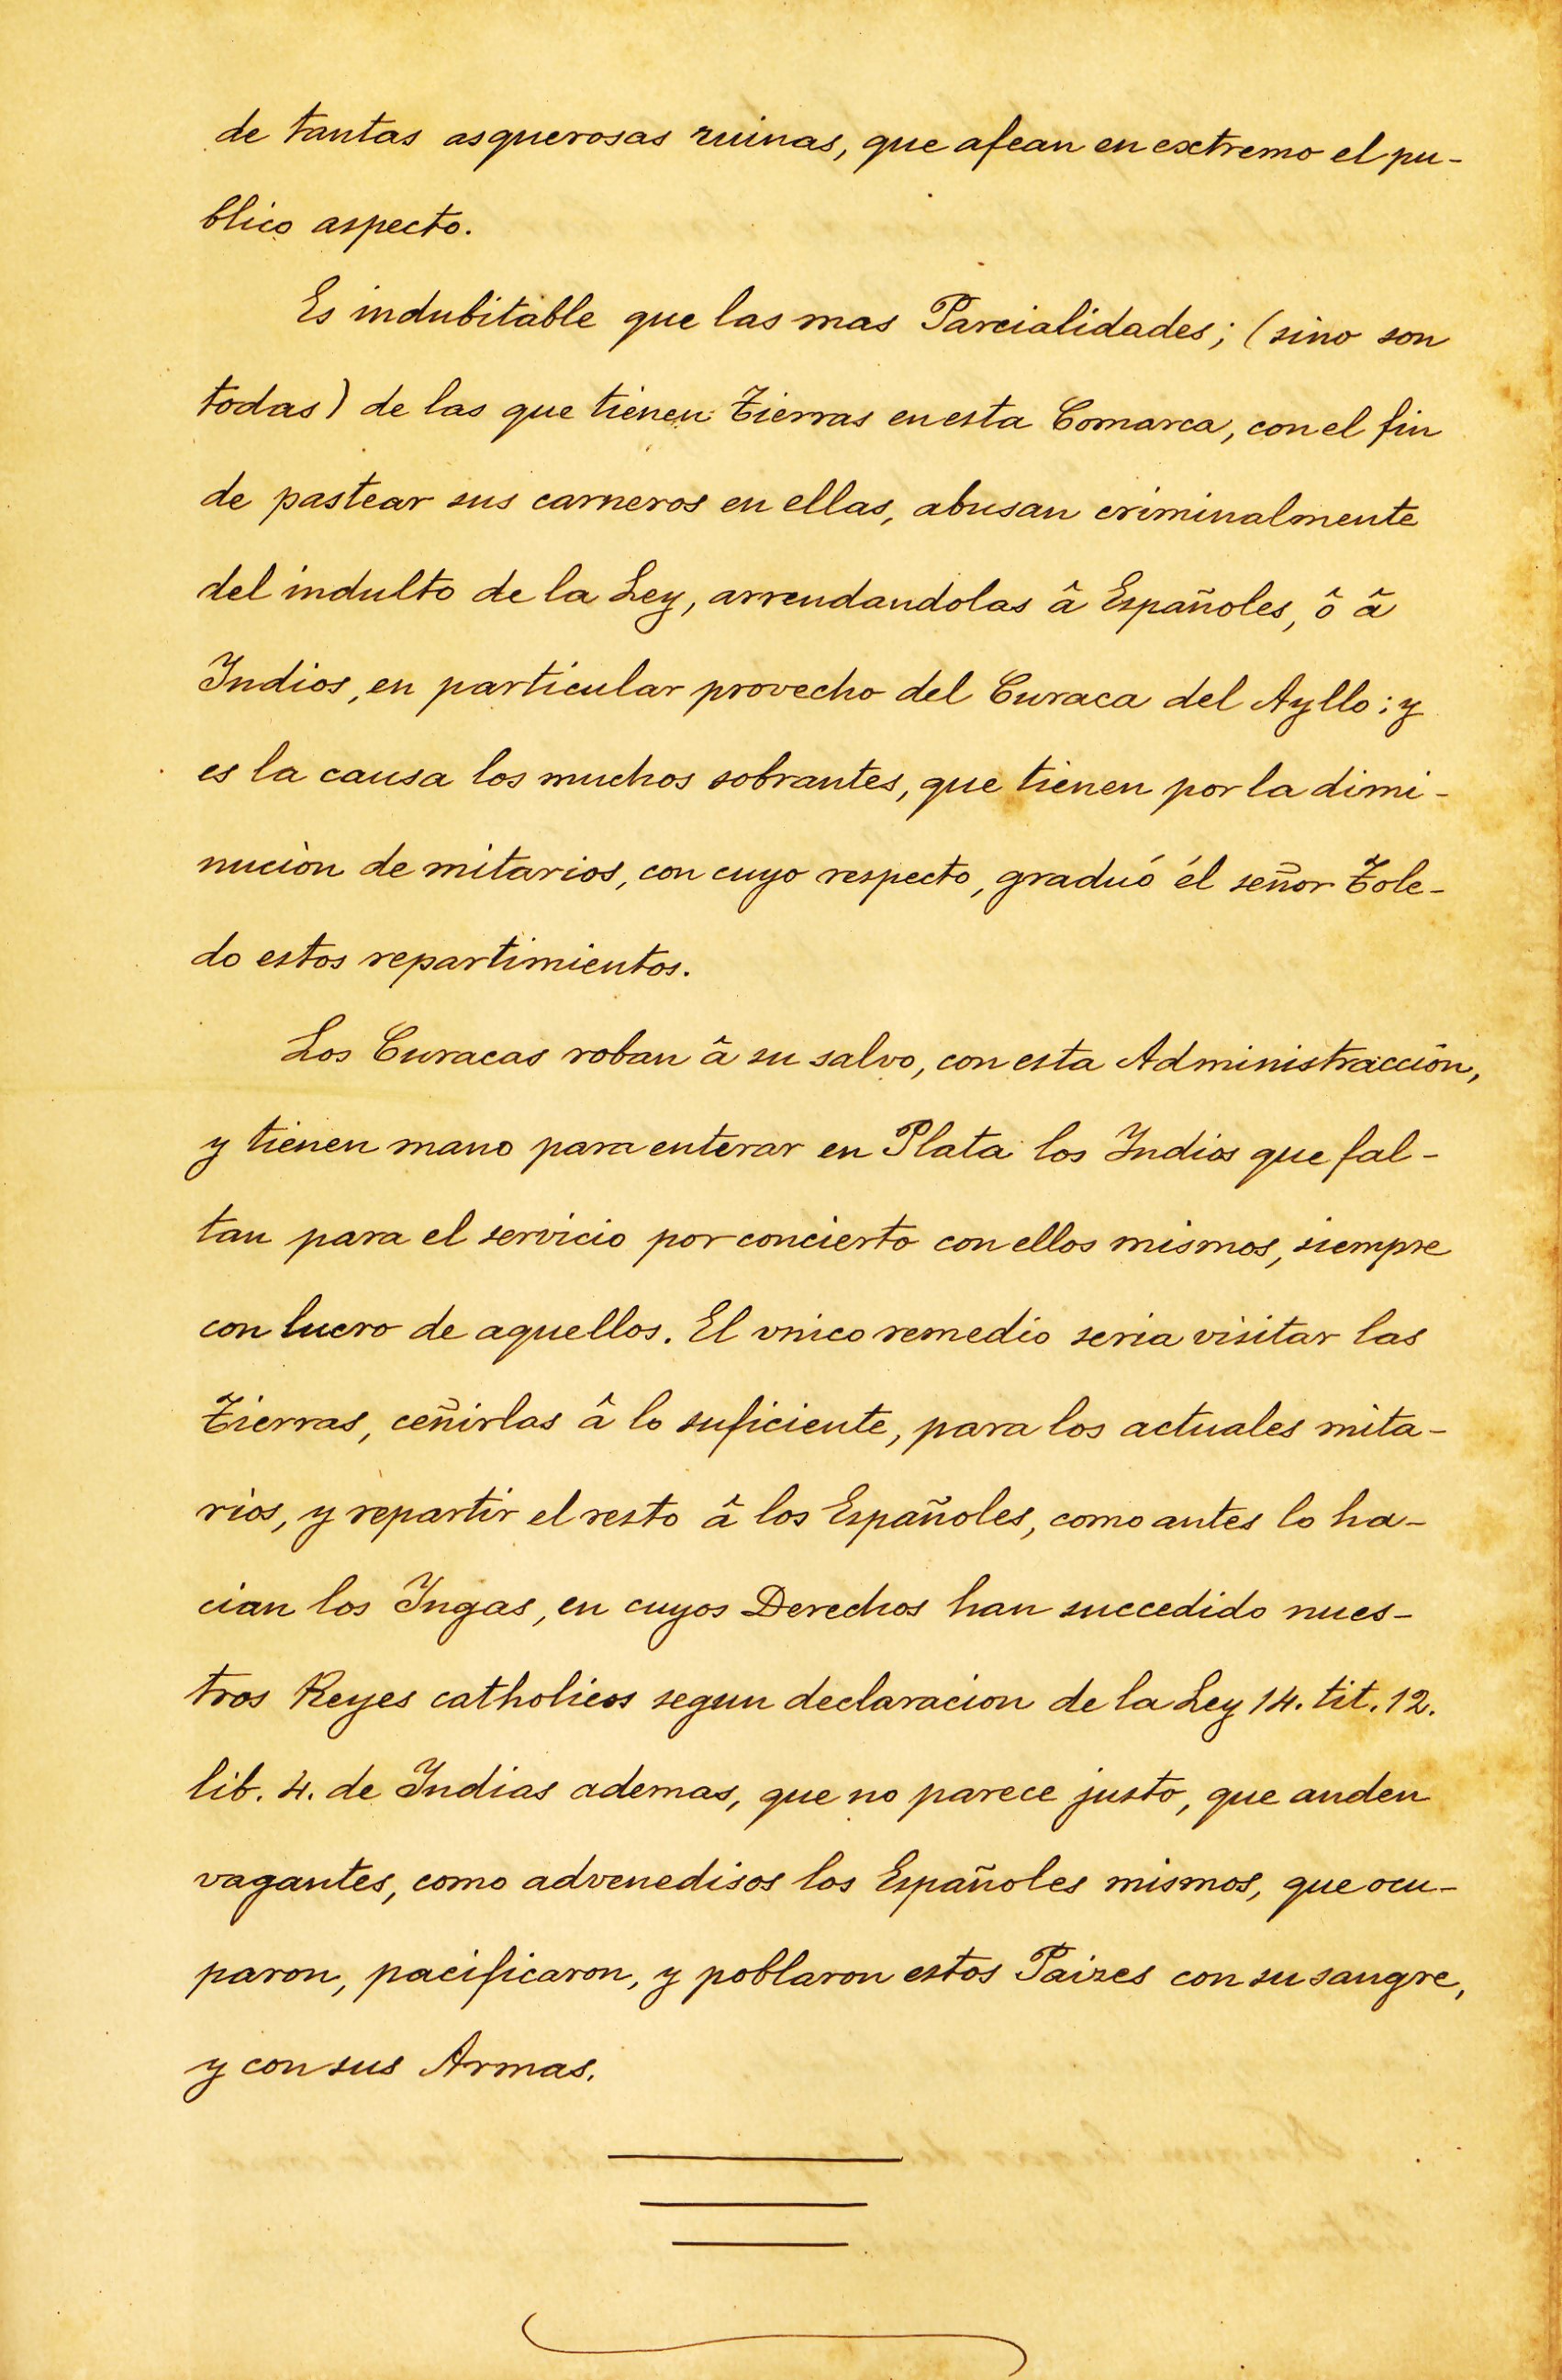 de tantas asquerosas ruinas, que afean en extremo el pu-
blico aspecto.
Es indubitable que las mas Parcialidades; (sino son
todas) de las que tienen Tierras en esta Comarca, con el fin
de pastear sus carneros en ellas, abusan criminalmente
del indulto de la Ley, arrendandolas â Españoles, ô â
Indios, en particular provecho del Curaca del Ayllo; y
es la causa los muchos sobrantes, que tienen por la dimi-
nución de mitarios, con cuyo respecto, graduó él señor Tole-
do estos repartimientos.
Los Curacas roban â su salvo, con esta Administracción,
y tienen mano para enterar en Plata los Indios que fal-
tan para el servicio por concierto con ellos mismos, siempre
con lucro de aquellos. El vnico remedio seria visitar las
Tierras, ceñirlas â lo suficiente, para los actuales mita-
rios, y repartir el resto â los Españoles, como antes lo ha-
cian los Ingas, en cuyos Derechos han succedido nues-
tros Reyes catholicos segun declaracion de la Ley 14. tit. 12.
lib. 4. de Indias ademas, que no parece justo, que anden
vagantes, como advenedisos los Españoles mismos, que ocu-
paron, pacificaron, y poblaron estos Paizes con su sangre,
y con sus Armas.